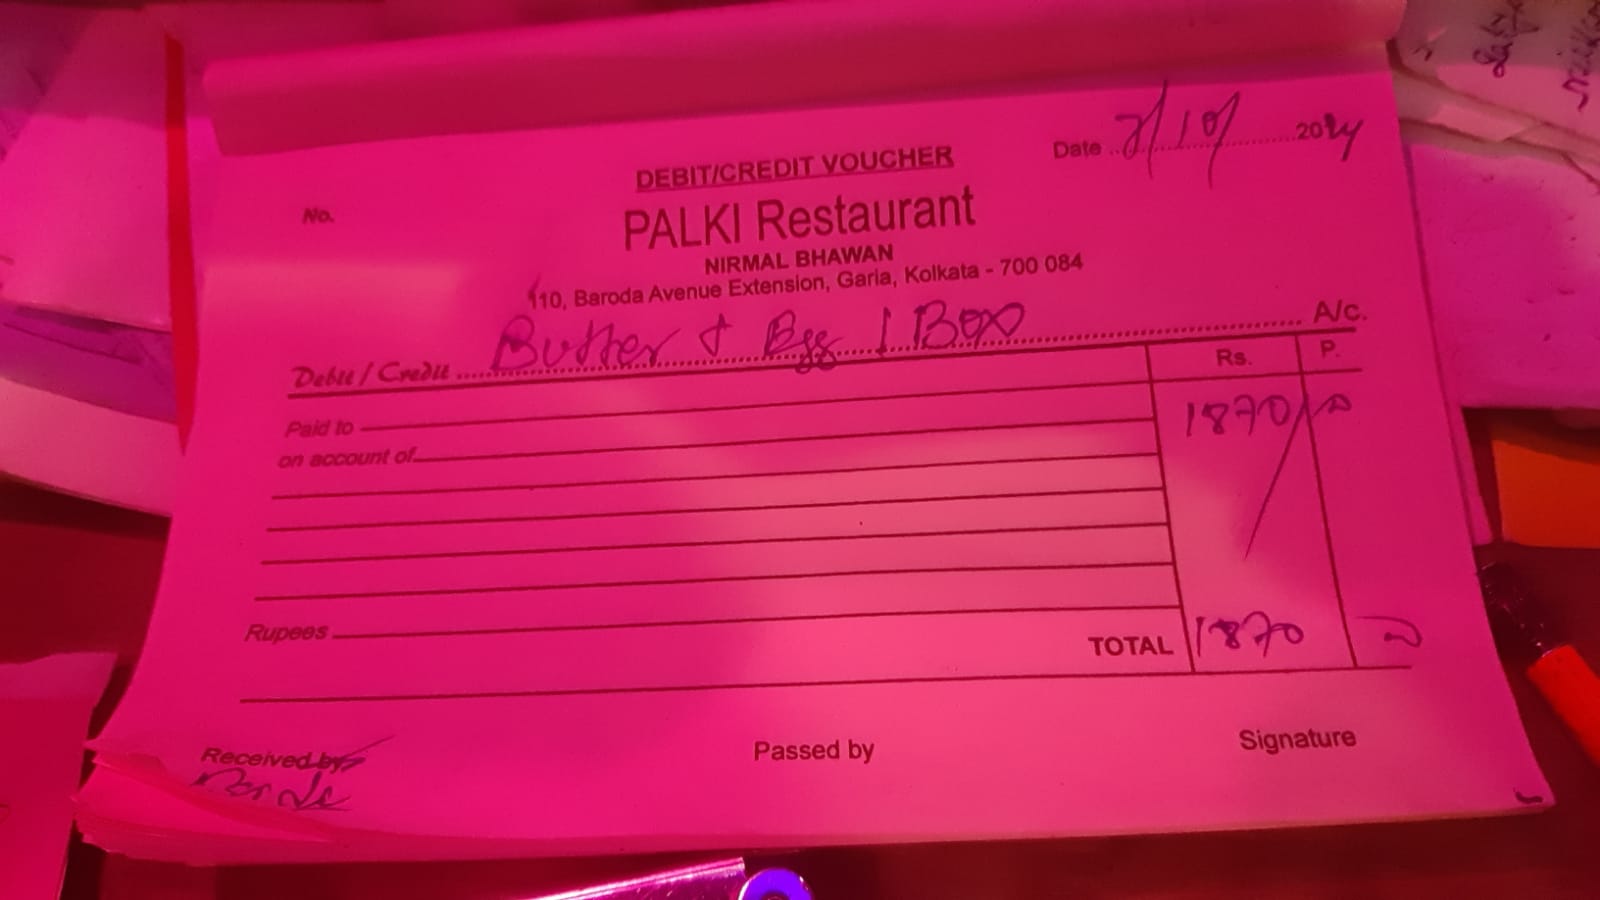 Date 2/10/ 2024
DEBIT/CREDIT VOUCHER
No.
PALKI Restaurant
NIRMAL BHAWAN
110, Baroda Avenue Extension, Garia, Kolkata - 700 084
Debit / Credit Butter & Egg 1 Box A/c.
Rs. P.
Paid to 1870/
on account of
Rupees
TOTAL 1870
Received by Passed by Signature